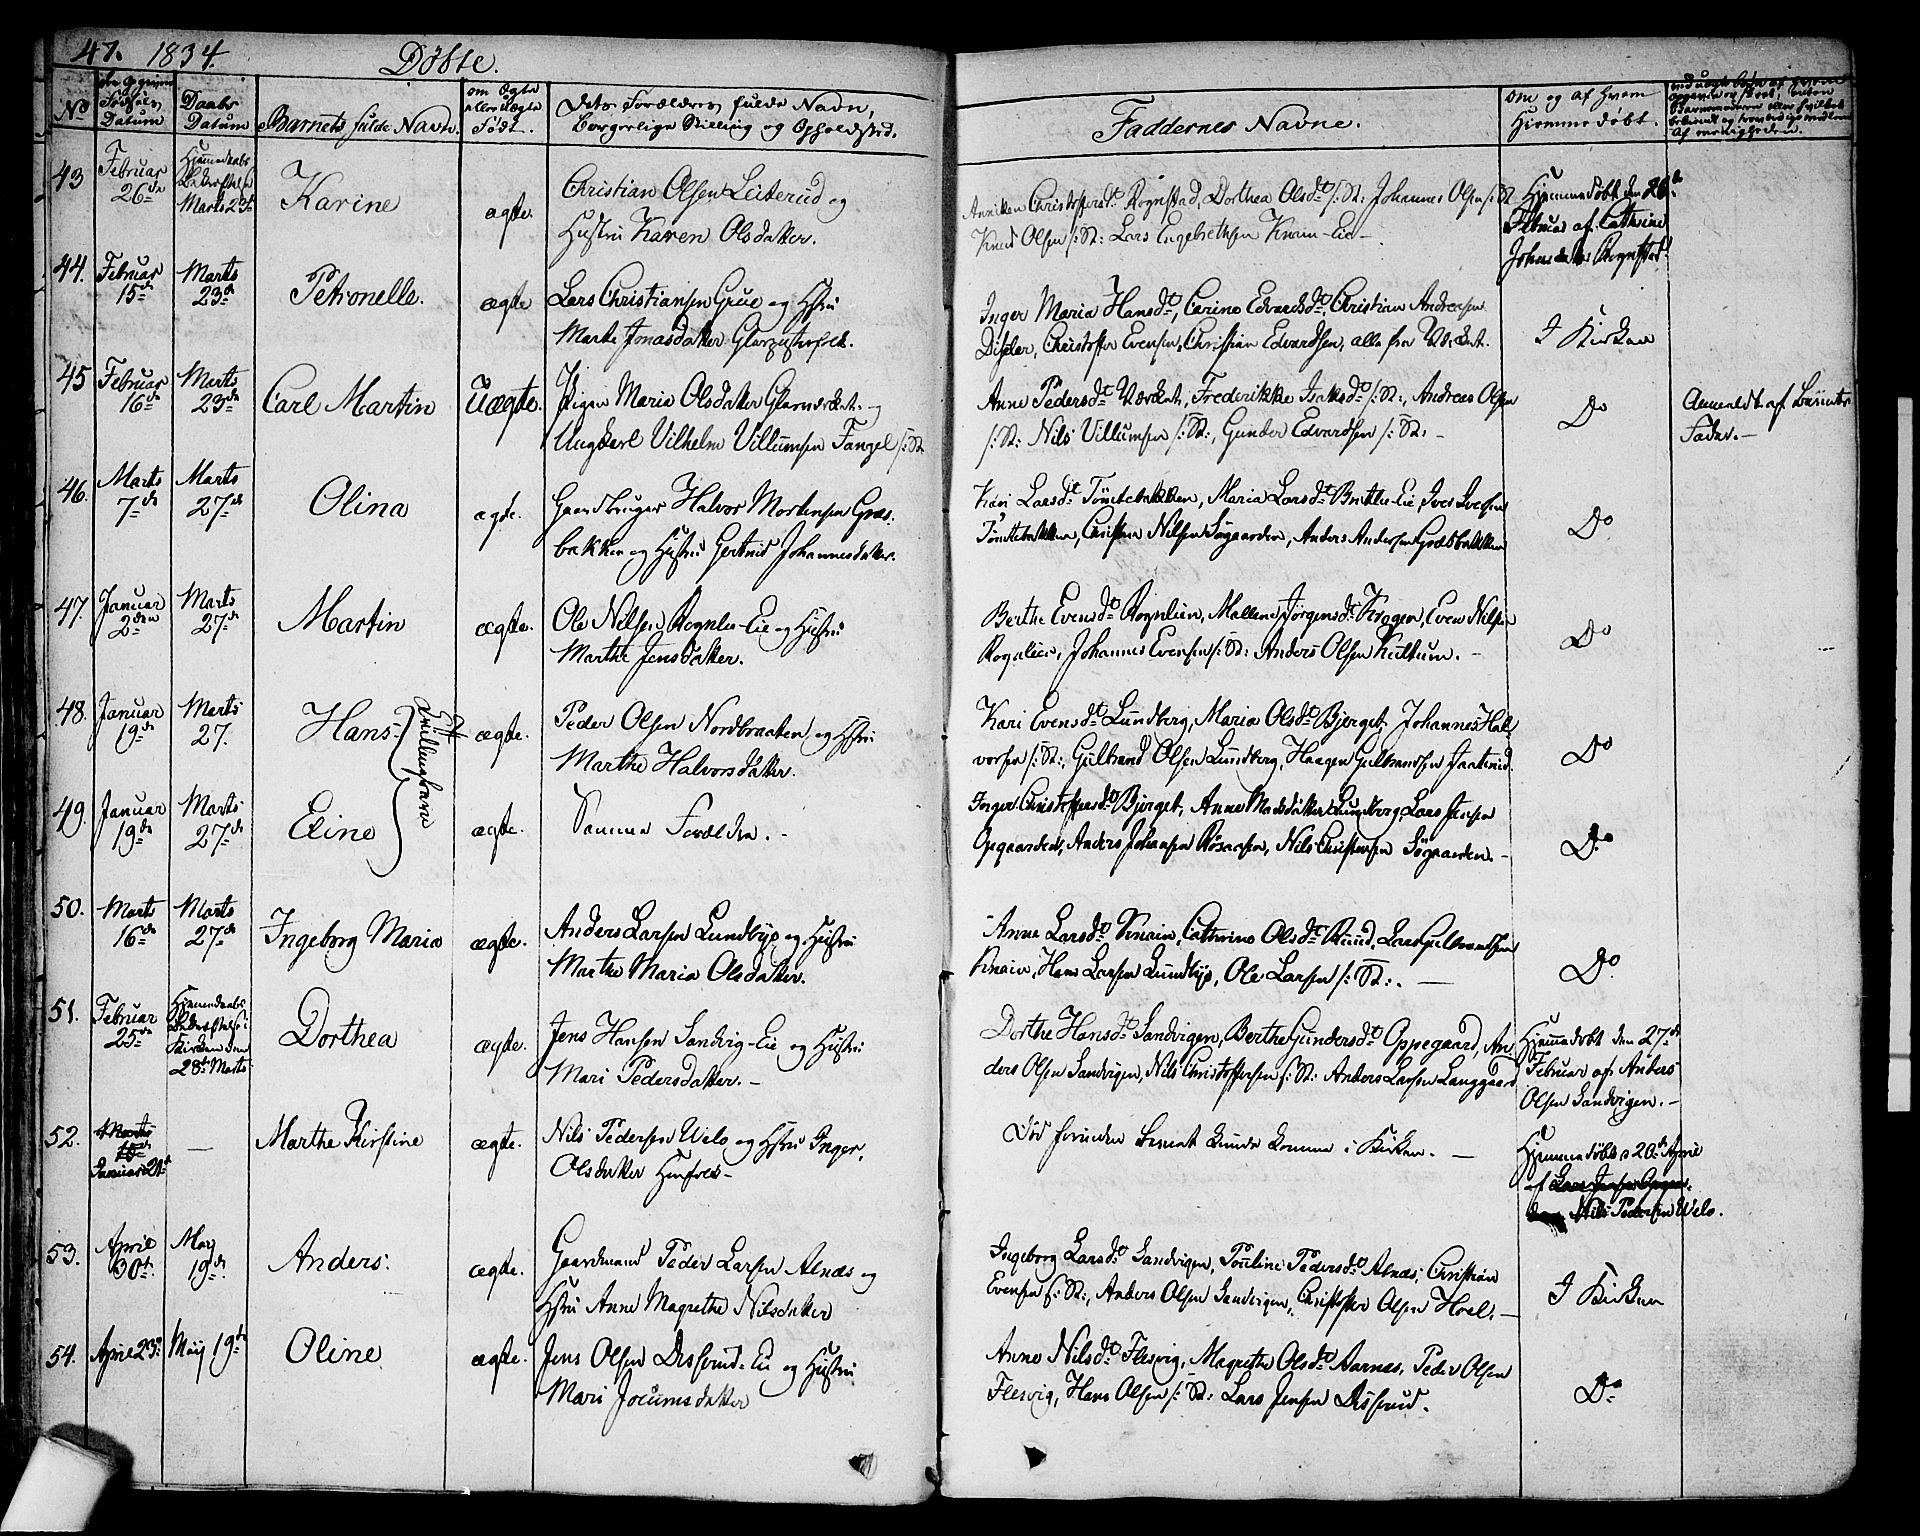 47. 1834. Døbte.
No
Fødsels Datum
Daabs Datum
Barnets fulde Navn.
om Ægte eller Uægte Født.
Dets Forældres fulde Navn, Borgerlige Stilling og Opholdsted.
Faddernes Navne.
Om og af hvem Hiemmedøbt.
43 Februar 26de
Hjemmedaabs Marts 23de
Karine
ægte.
Christian Olsen Leiterud og
Hustru Karen Olsdatter.
Anniken Christophersdt. Rognstad, Dorthea Olsdt /: St: Johannes Olsen /: St:
Knud Olsen /: St: Lars Engebrethsen Knai-Eie –
Hjemmedøbt den 26de
Februar af Cathrine
Johansdatter Rognstad.
44. Februar 15de
Marts 23de
Petronelle.
ægte
Lars Christiansen Grue og Hstru
Marthe Jonasdatter
Inger Maria Hansdt, Carine Edvardsdt, Christian Andersen
Christopher Evensen, Christian Edvardsen, alle fra Værket.
I Kirken
45 Februar 16de
Marts 23de
Carl Martin
Uægte.
Pigen Maria Olsdatter Glasværket og
Ungkarl Vilhelm Villumsen Fangel /: St:
Anne Pedersdt Værket, Frederikke Isaksdt /: St:, Andreas Olsen
/: St: Nils Villumsen /: St:, Gunder Edvardsen /: St: –
Do
Anmeldt af Barnets
Fader. –
46. Marts 7de
Marts 27de
Olina
ægte.
Gaardbruger Halvor Mortensen Græs-
bakken og Hustru Gertrud Johannesdatter.
Kari Larsdt Tømtebakken, Maria Larsdt Eie, Iver Iversen
Tømtebakken, Christian Nilsen Søgaarden, Anders Andersen Græsbakken
Do
47. Januar 2den
Marts 27de
Martin
ægte.
Ole Nilsen Rognlie-Eie og Hustru
Marthe Jensdatter.
Berthe Evensdt Rognlien, Mallene Jørgensdt Krogen, Even Nilsen
Rognlien, Johannes Evensen /: St: Anders Olsen Kultum. –
Do
48. Januar 19de
Marts 27.
Hans
Tvillingbørn
ægte.
Peder Olsen Nordbraaten og Hstru
Marthe Halvorsdatter.
Kari Evensdt Lundberg, Maria Olsdt Bjerget, Johannes Hal-
vorsen /: St:, Gulbrand Olsen Lundberg, Haagen Gulbrandsen
Do
49. Januar 19de
Marts 27de
Eline
ægte.
Samme Forældre. –
Inger Christophersdt Bjerget, Anne Madsdatter Lundberg, Lars Jensen
Opgaarden, Anders Johansen Nils Christensen Søgaarden. –
Do
50. Marts 16de
Marts 27de
Ingeborg Maria
ægte.
Anders Larsen Lundbye og Hustru
Marthe Maria Olsdatter.
Anne Larsdt Knain, Cathrine Olsdt Ruud, Lars Gulbrandsen
Knain, Hans Larsen Lundbye, Ole Larsen /: St:. –
Do
51. Februar 25de
Hjemmedaabs Kirken den 28de Marts
Dorthea
ægte.
Jens Hansen Sandvig-Eie og Hustru
Mari Pedersdatter. –
Dorthe Hansdt Sandvigen, Berthe Gundersdt Oppegaard, An-
ders Olsen Sandvigen, Nils Christophersen /: St: Anders Larsen Langgaard
Hjemmedøbt den 27de
Februar af Anders
Olsen Sandvigen. –
52. Januar 21de
–
Marthe Kirstine
ægte.
Nils Pedersen Welo og Hstru Inger
Olsdatter
Død forinden Barnet kunde komme i Kirken. –
Hjemmedøbt 20de April
af
Nils Pedersen Welo.
53. April 30te
May 19de
Anders.
ægte.
Gaardmand Peder Larsen Alnæs og
Hstru Anne Magrethe Nilsdatter
Ingeborg Larsdt Sandvigen, Pouline Pedersdt Alnæs, Christian
Evensen /: St:, Anders Olsen Sandvigen, Christopher Olsen Hoel. –
I Kirken
54. April 23de
May 19de
Oline
ægte.
Jens Olsen Disserud-Eie og Hustru
Mari Jocumsdatter
Anne Nilsdt Flesvig, Magrethe Olsdt Aarnæs, Peder Olsen
Flesvig, Hans Olsen /: St: Lars Jensen Disserud.
Do